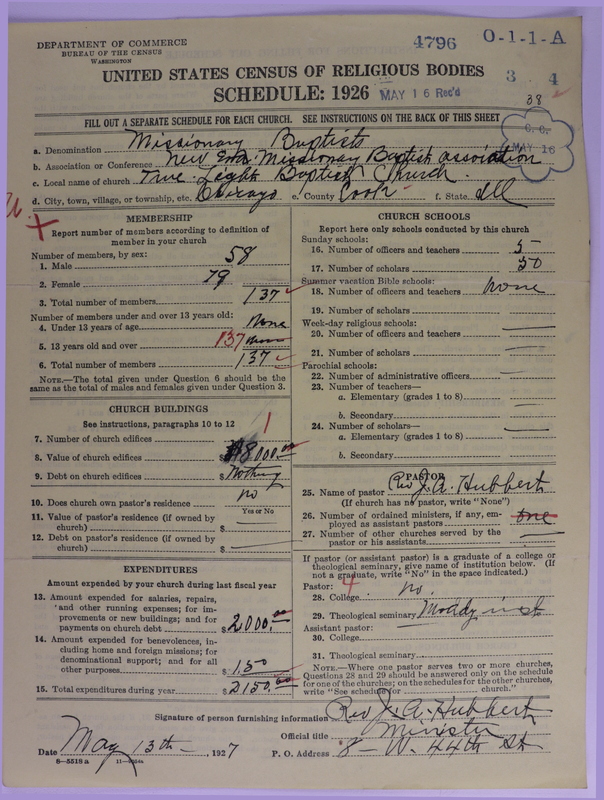 DEPARTMENT OF COMMERCE
BUREAU OF THE CENSUS
WASHINGTON
4796 O-1-1-A
UNITED STATES CENSUS OF RELIGIOUS BODIES
3 4
SCHEDULE: 1926
MAY 16 Rec'd
38
FILL OUT A SEPARATE SCHEDULE FOR EACH CHURCH. SEE INSTRUCTIONS ON THE BACK OF THIS SHEET
C. C.
MAY 16
a. Denomination Missionary Baptists
b. Association or Conference New Era Missionary Baptist association
c. Local name of church True Light Baptist Church.
d. City, town, village, or township, etc. Chicago e. County Cook f. State Ill
MEMBERSHIP
Report number of members according to definition of member in your church
Number of members, by sex:
1. Male 58
2. Female 79
3. Total number of members 137
Number of members under and over 13 years old:
4. Under 13 years of age none
5. 13 years old and over 137
6. Total number of members 137
NOTE.—The total given under Question 6 should be the same as the total of males and females given under Question 3.
CHURCH BUILDINGS
See instructions, paragraphs 10 to 12
7. Number of church edifices 1
8. Value of church edifices $ 8000.00
9. Debt on church edifices $ Nothing
10. Does church own pastor's residence no
Yes or No
11. Value of pastor's residence (if owned by church) $
12. Debt on pastor's residence (if owned by church) $
EXPENDITURES
Amount expended by your church during last fiscal year
13. Amount expended for salaries, repairs, and other running expenses; for improvements or new buildings; and for payments on church debt $ 2000.00
14. Amount expended for benevolences, including home and foreign missions; for denominational support; and for all other purposes $ 150
15. Total expenditures during year $ 2150.00
CHURCH SCHOOLS
Report here only schools conducted by this church
Sunday schools:
16. Number of officers and teachers 5
17. Number of scholars 50
Summer vacation Bible schools:
18. Number of officers and teachers none
19. Number of scholars
Week-day religious schools:
20. Number of officers and teachers
21. Number of scholars
Parochial schools:
22. Number of administrative officers
23. Number of teachers—
a. Elementary (grades 1 to 8)
b. Secondary
24. Number of scholars—
a. Elementary (grades 1 to 8)
b. Secondary
PASTOR
25. Name of pastor Rev J. A. Hubbert
(If church has no pastor, write "None")
26. Number of ordained ministers, if any, employed as assistant pastors one
27. Number of other churches served by the pastor or his assistants
If pastor (or assistant pastor) is a graduate of a college or theological seminary, give name of institution below. (If not a graduate, write "No" in the space indicated.)
Pastor:
28. College no.
29. Theological seminary Moddy inst
Assistant pastor:
30. College
31. Theological seminary
NOTE.—Where one pastor serves two or more churches, Questions 28 and 29 should be answered only on the schedule for one of the churches; on the schedules for the other churches, write "See schedule for church."
Signature of person furnishing information Rev J. A. Hubbert
Official title Minister
Date May 13th, 1927 P. O. Address 8 - W. 44th St
8—5518 a